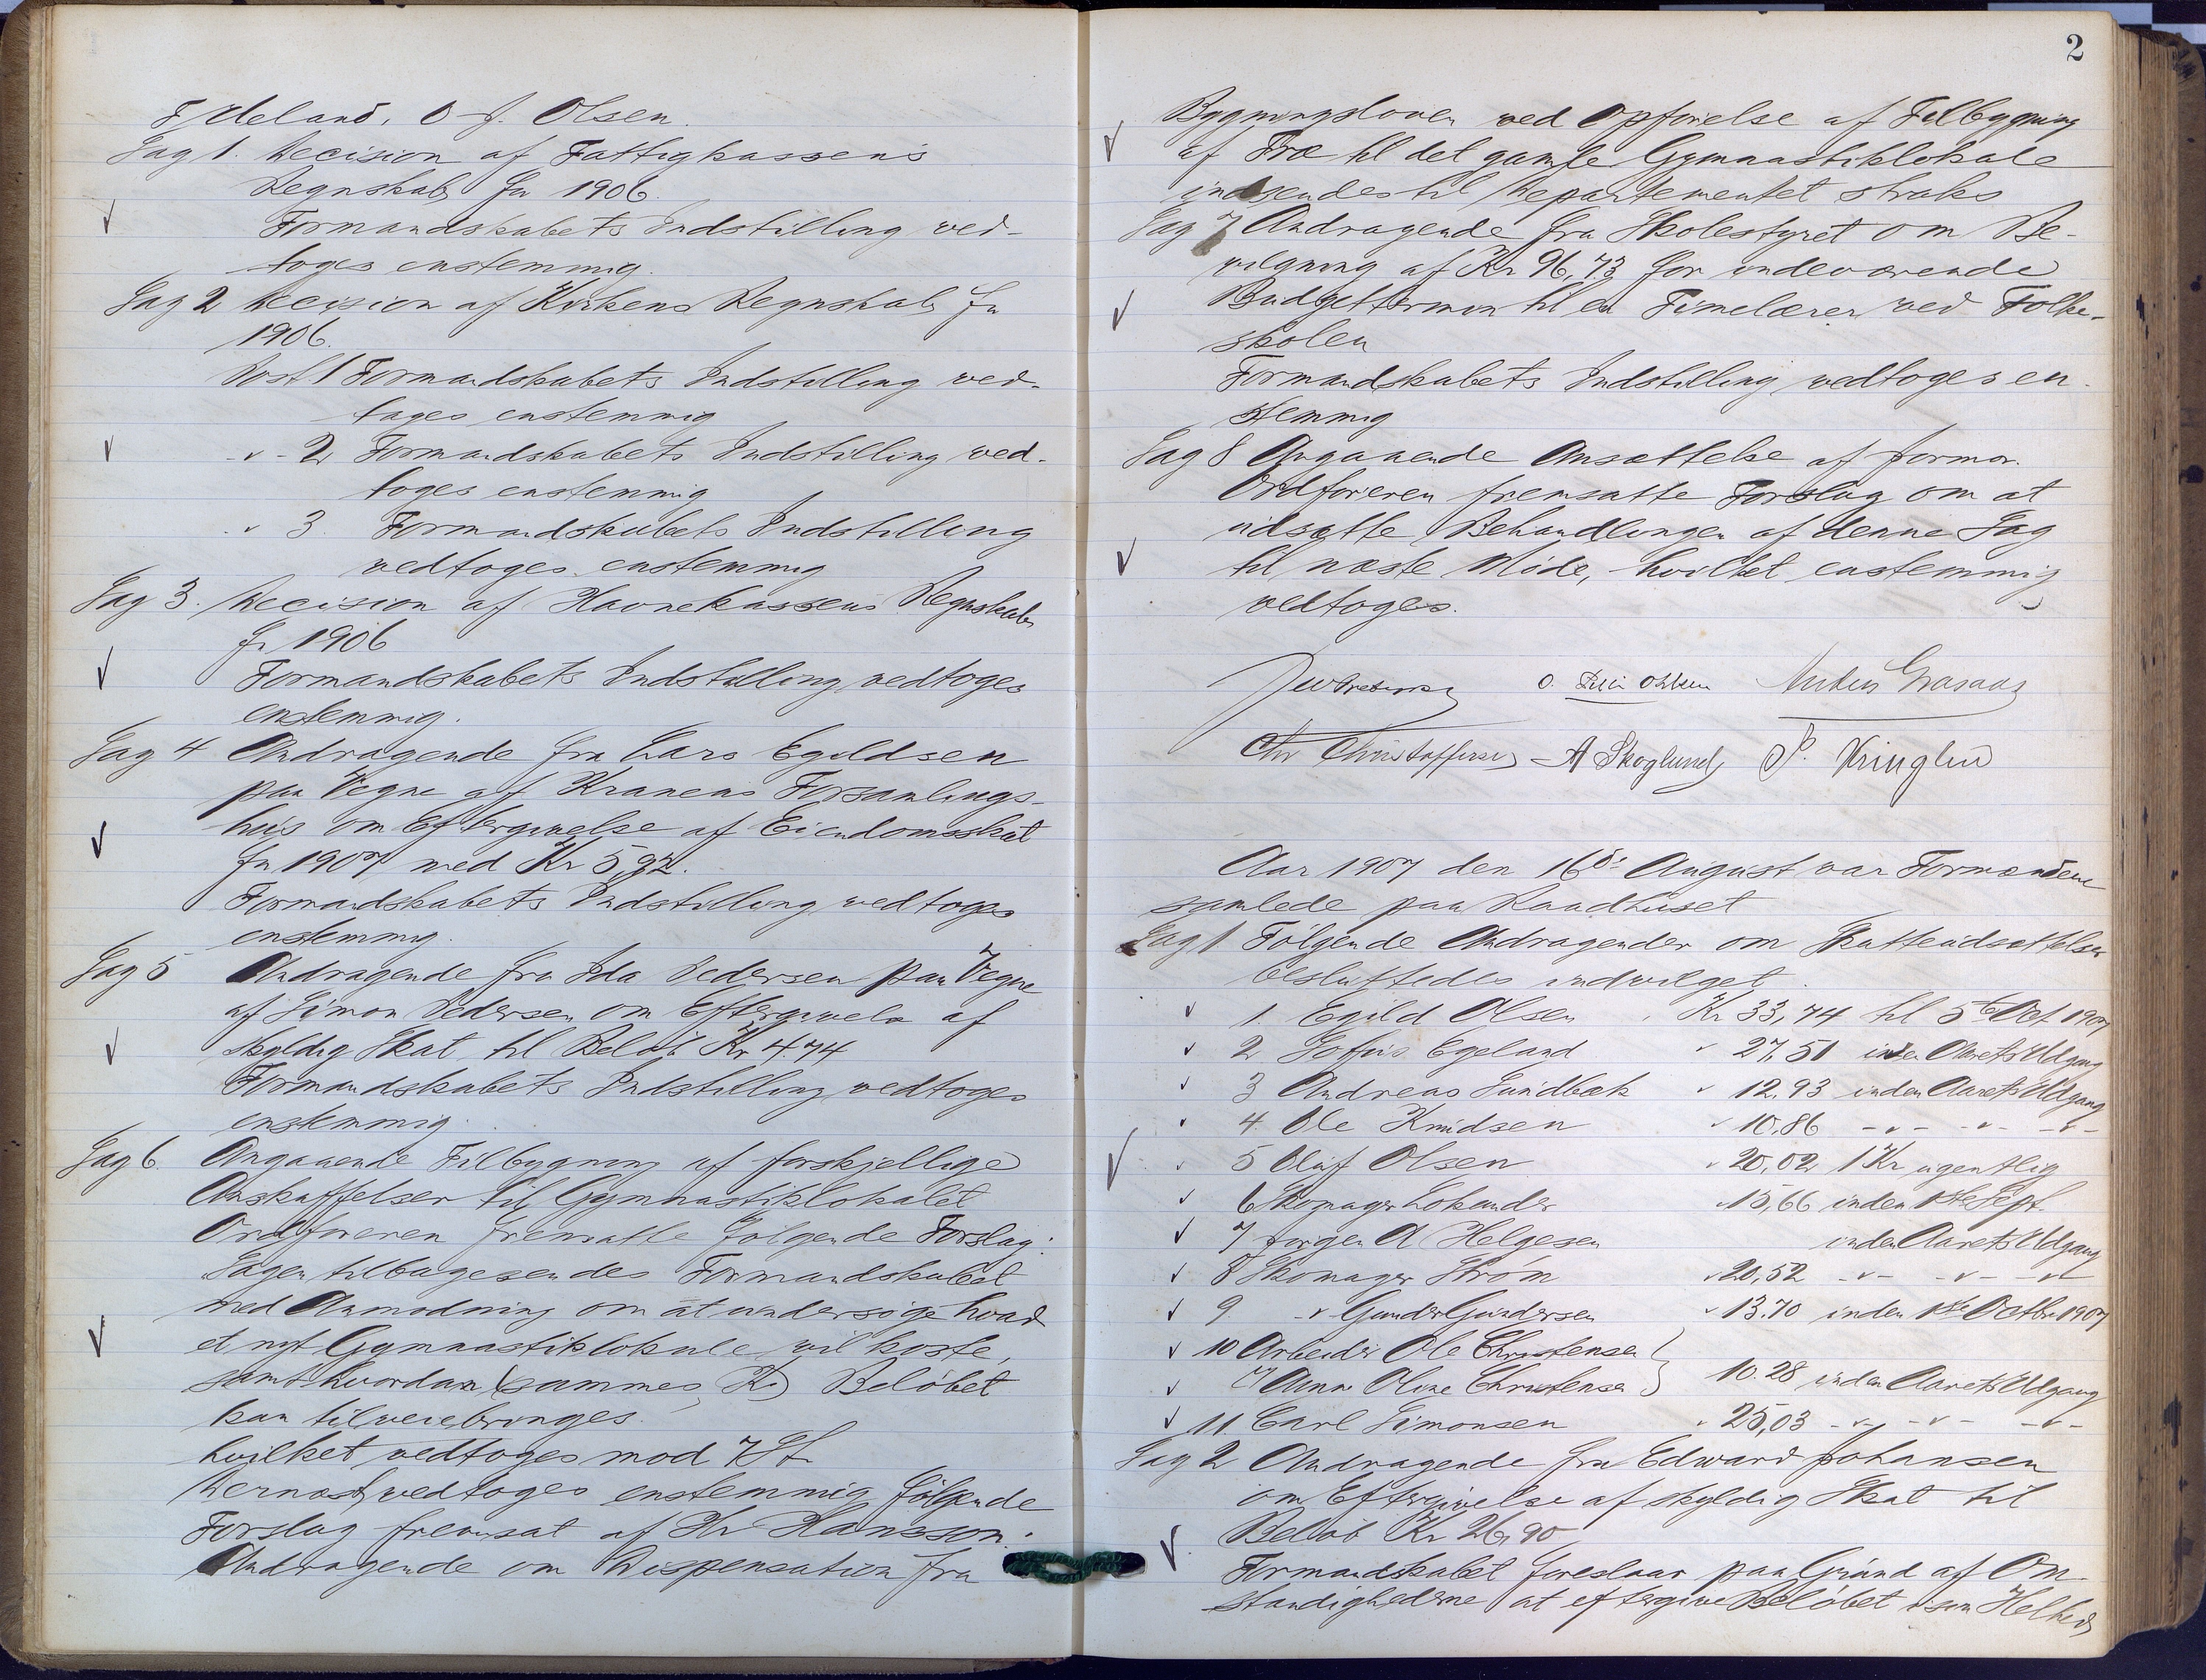 Fjeldeland. O. J. Olsen.
Sag 1. Decision af Fattigkassens
Regnskab for 1906.
Formandskabets Indstilling ved-
toges enstemmig.
Sag 2 Decision af Kirkens Regnskab for
1906.
Post 1 Formandskabets Indstilling ved-
tages enstemmig
- " - 2 Formandskabets Indstilling ved-
toges enstemmig
" 3. Formandskabets Indstilling
vedtoges enstemmig
Sag 3. Decision af Havnekassens Regnskab
for 1906
Formandskabets Indstilling vedtoges
enstemmig.
Sag 4 Andragende fra Lars Egeldsen
paa Vegne af Kranens Forsamlings-
hus om Eftergivelse af Eiendomsskat
for 1907 med Kr 5,92.
Formandskabets Indstilling vedtoges
enstemmig.
Sag 5 Andragende fra Ida Pedersen paa Vegne
af Simon Pedersen om Eftergivels af
skyldig Skat til Beløb Kr 4.74
Formandskabets Indstilling vedtoges
enstemmig.
Sag 6. Angaaende Tilbygning af forskjellige
Anskaffelser til Gymnastiklokalet
Ordføreren fremsatte følgende Forslag:
Sagen tilbagesendes Formandskabet
med Anmodning om at undersøge hvad
et nyt Gymnastiklokale vil koste,
samt hvordan (sammes K) Beløbet
kan tilveiebringes.
hvilket vedtoges mod 7 St.
Dernæst vedtoges enstemmig følgende
Forslag fremsat af Hr Hansson:
Andragende om Dispensation fra
2
Bygningsloven ved Opførelse af Tilbygning
af Træ til det gamle Gymnastiklokale
indsendes til Departementet straks
Sag 7 Andragende fra Skolestyret om Be-
vilgning af Kr 96,73 for indeværende
Budgettermin til en Timelærer ved Folke-
skolen
Formandskabets Indstilling vedtoges en-
stemmig
Sag 8 Angaaende Ansættelse af Jormor.
Ordføreren fremsatte Forslag om at
udsætte Behandlingen af denne Sag
til næste Møde, hvilket enstemmig
vedtoges.
O. Ohlsen Anders Grasaas
Chr Christoffersen A Skoglund P. Kringlen
Aar 1907 den 16de August var Formændene
samlede paa Raadhuset
Sag 1 Følgende Andragender om Skatteudsættelser
besluttedes indvilget.
1. Egild Olsen Kr 33,74 til 5te Oct 1907
2 Sofus Egeland " 27,51 inden Aarets Udgang
3 Andreas Sundbæk " 12,93 inden Aarets Udgang
4 Ole Knudsen " 10,86 - " - - " - - " -
5 Oluf Olsen " 20,02 1 Kr ugentlig
6 Skomager Lokander " 15,66 inden 1ste Sept.
7 Jørgen A Helgesen inden Aarets Udgang
8 Skomager Strøm " 20,52 - " - - " - - " -
9. - " Gunder Gundersen " 13.70 inden 1ste Octbr 1907
10 Arbeider Ole Christensen
" Anne Oline Christensen } 10.28 inden Aarets Udgang
11 Carl Simonsen " 25,03 - " - - " - - " -
Sag 2 Andragende fra Edward Johansen
om Eftergivelse af skyldig Skat til
Beløb Kr 26,90
Formandskabet foreslaar paa Grund af Om-
stændighederne at eftergive Beløbet i sin Helhed